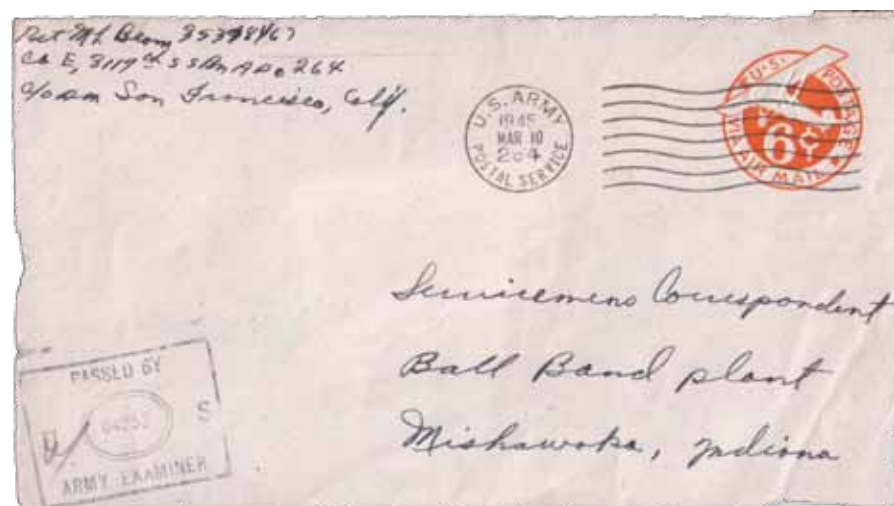 Pvt M L 35398467
Co E, 3117th S S Bn APO 264
c/o PM San Francisco, Calif.
U.S. ARMY
1945
MAR 10
264
POSTAL SERVICE
U.S. POSTAGE
6¢
VIA AIR MAIL
Servicemens Correspondent
Ball Band plant
Mishawaka, Indiana
PASSED BY
S
ARMY EXAMINER